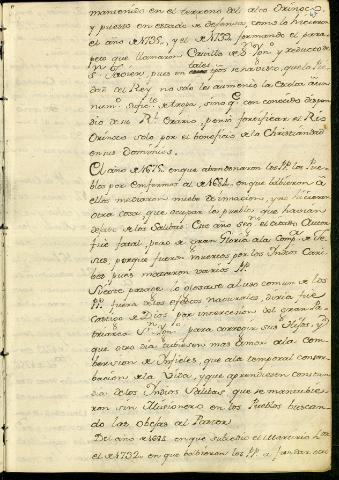 mantenido en el terreno del alto Orinoco
y puesto en estado de defensa, como lo hicieron
el año de 1735, y el de 1732 formando el para
peto que llamaron Castillo de Sn
Sn Xavier, pues en tales se ha visto, que la Pie
dad del Rey no solo les aumentó la Escolta
num.o sufic.te de tropa, sino q.e con conocido dispen
dio de su Rl Erario, pensó fortificar el Rio
Orinoco solo por el beneficio de la Christiandad
en sus Dominios.
El año de 1675 en que abandonaron los PP. los Pue
blos por al de 1684, en que bolvieron a
ellos mediaron nueve de inaccion, y no hicieron
otra cosa, que ocupar los pueblos que havian
de los Salibas. Cuio año según el citado Autor
fue fatal, pero de gran Gloria a la Comp.a de Je
sus, porque fueron muertos por los Indios Cari
bes pues mataron varios PP.
Siesta pasase lo olvidase al uso comun de los
PP. fuera de los efectos naturales, diria fue
Castigo de Dios por intercesion del gran Pa
triarca Sn para corregir sus Hijos, y
que otro dia tubiesen mas amor a la com
bersion de Infieles, que a la temporal conser
bacion de la Vida, y que aprendiesen constan
cia de los Indios Salibas, que se mantubie
ron sin Missionero en los Pueblos buscan
do las obejas al Pastor
Del año de 1684 en que sucedio el Martirio
el de 1732 en que bolvieron los PP. a fundar